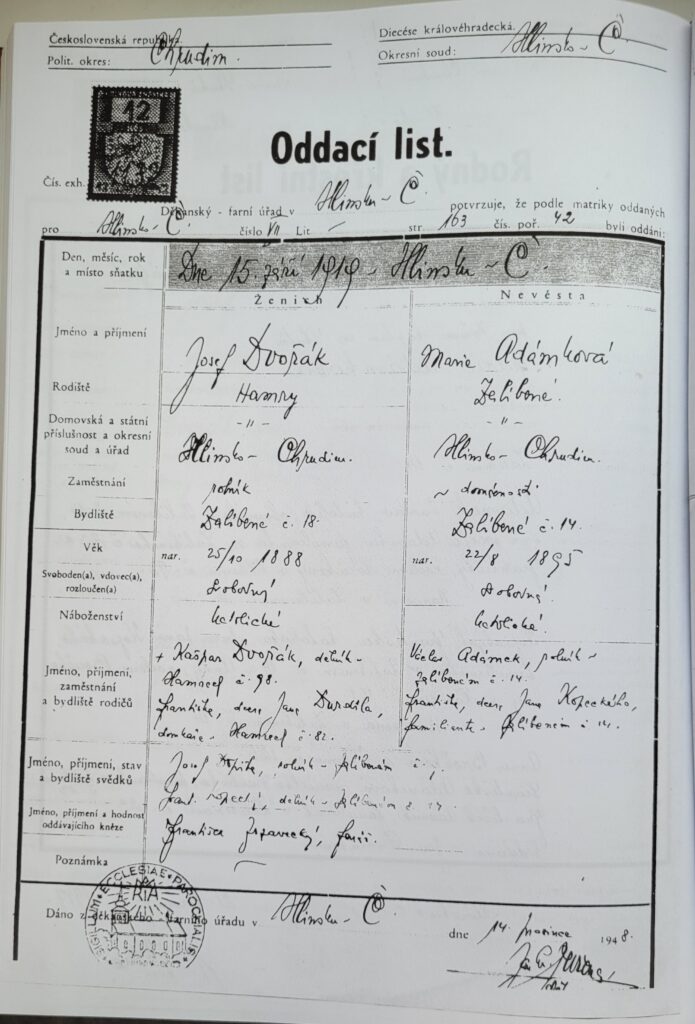 Československá republika.
Diecése královéhradecká.
Polit. okres: Chrudim.
Okresní soud: Hlinsko - Č
12
Oddací list.
Čís. exh.
Děkanský - farní úřad v Hlinsku - Č potvrzuje, že podle matriky oddaných
pro Hlinsko - Č číslo VII Lit. — str. 163 čís. poř. 42 byli oddáni:
Den, měsíc, rok
a místo sňatku
Dne 15. září 1919 - Hlinsku - Č.
Ženich Nevěsta
Jméno a příjmení Josef Dvořák Marie Adámková
Rodiště Hamry Zalíbené.
Domovská a státní
příslušnost a okresní
soud a úřad
-"- -"-
Hlinsko - Chrudim. Hlinsko - Chrudim.
Zaměstnání rolník ~ domácnosti
Bydliště Zalíbené č. 18. Zalíbené č. 14.
Věk nar. 25/10 1888 nar. 22/8 1895
Svoboden(a), vdovec(a),
rozloučen(a)
svobodný svobodná.
Náboženství katolické katolické.
Jméno, příjmení,
zaměstnání
a bydliště rodičů
+ Kašpar Dvořák, dělník -
Hamrech č. 98.
Františka, dcera Jana Durdila,
domkáře - Hamrech č. 82.
Václav Adámek, rolník ~
Zalíbeném č. 14.
Františka, dcera Jana Kopeckého,
familianta - Zalíbeném č. 14.
Jméno, příjmení, stav
a bydliště svědků
Josef rolník - Zalíbeném č.
Frant. Kopecký, dělník - Zalíbeném č. 14
Jméno, příjmení a hodnost
oddávajícího kněze
František farář.
Poznámka —
SIGILLUM ECCLESIAE PAROCHIALIS
Dáno z děkanského - farního úřadu v Hlinsku - Č.
dne 14. prosince 1948.